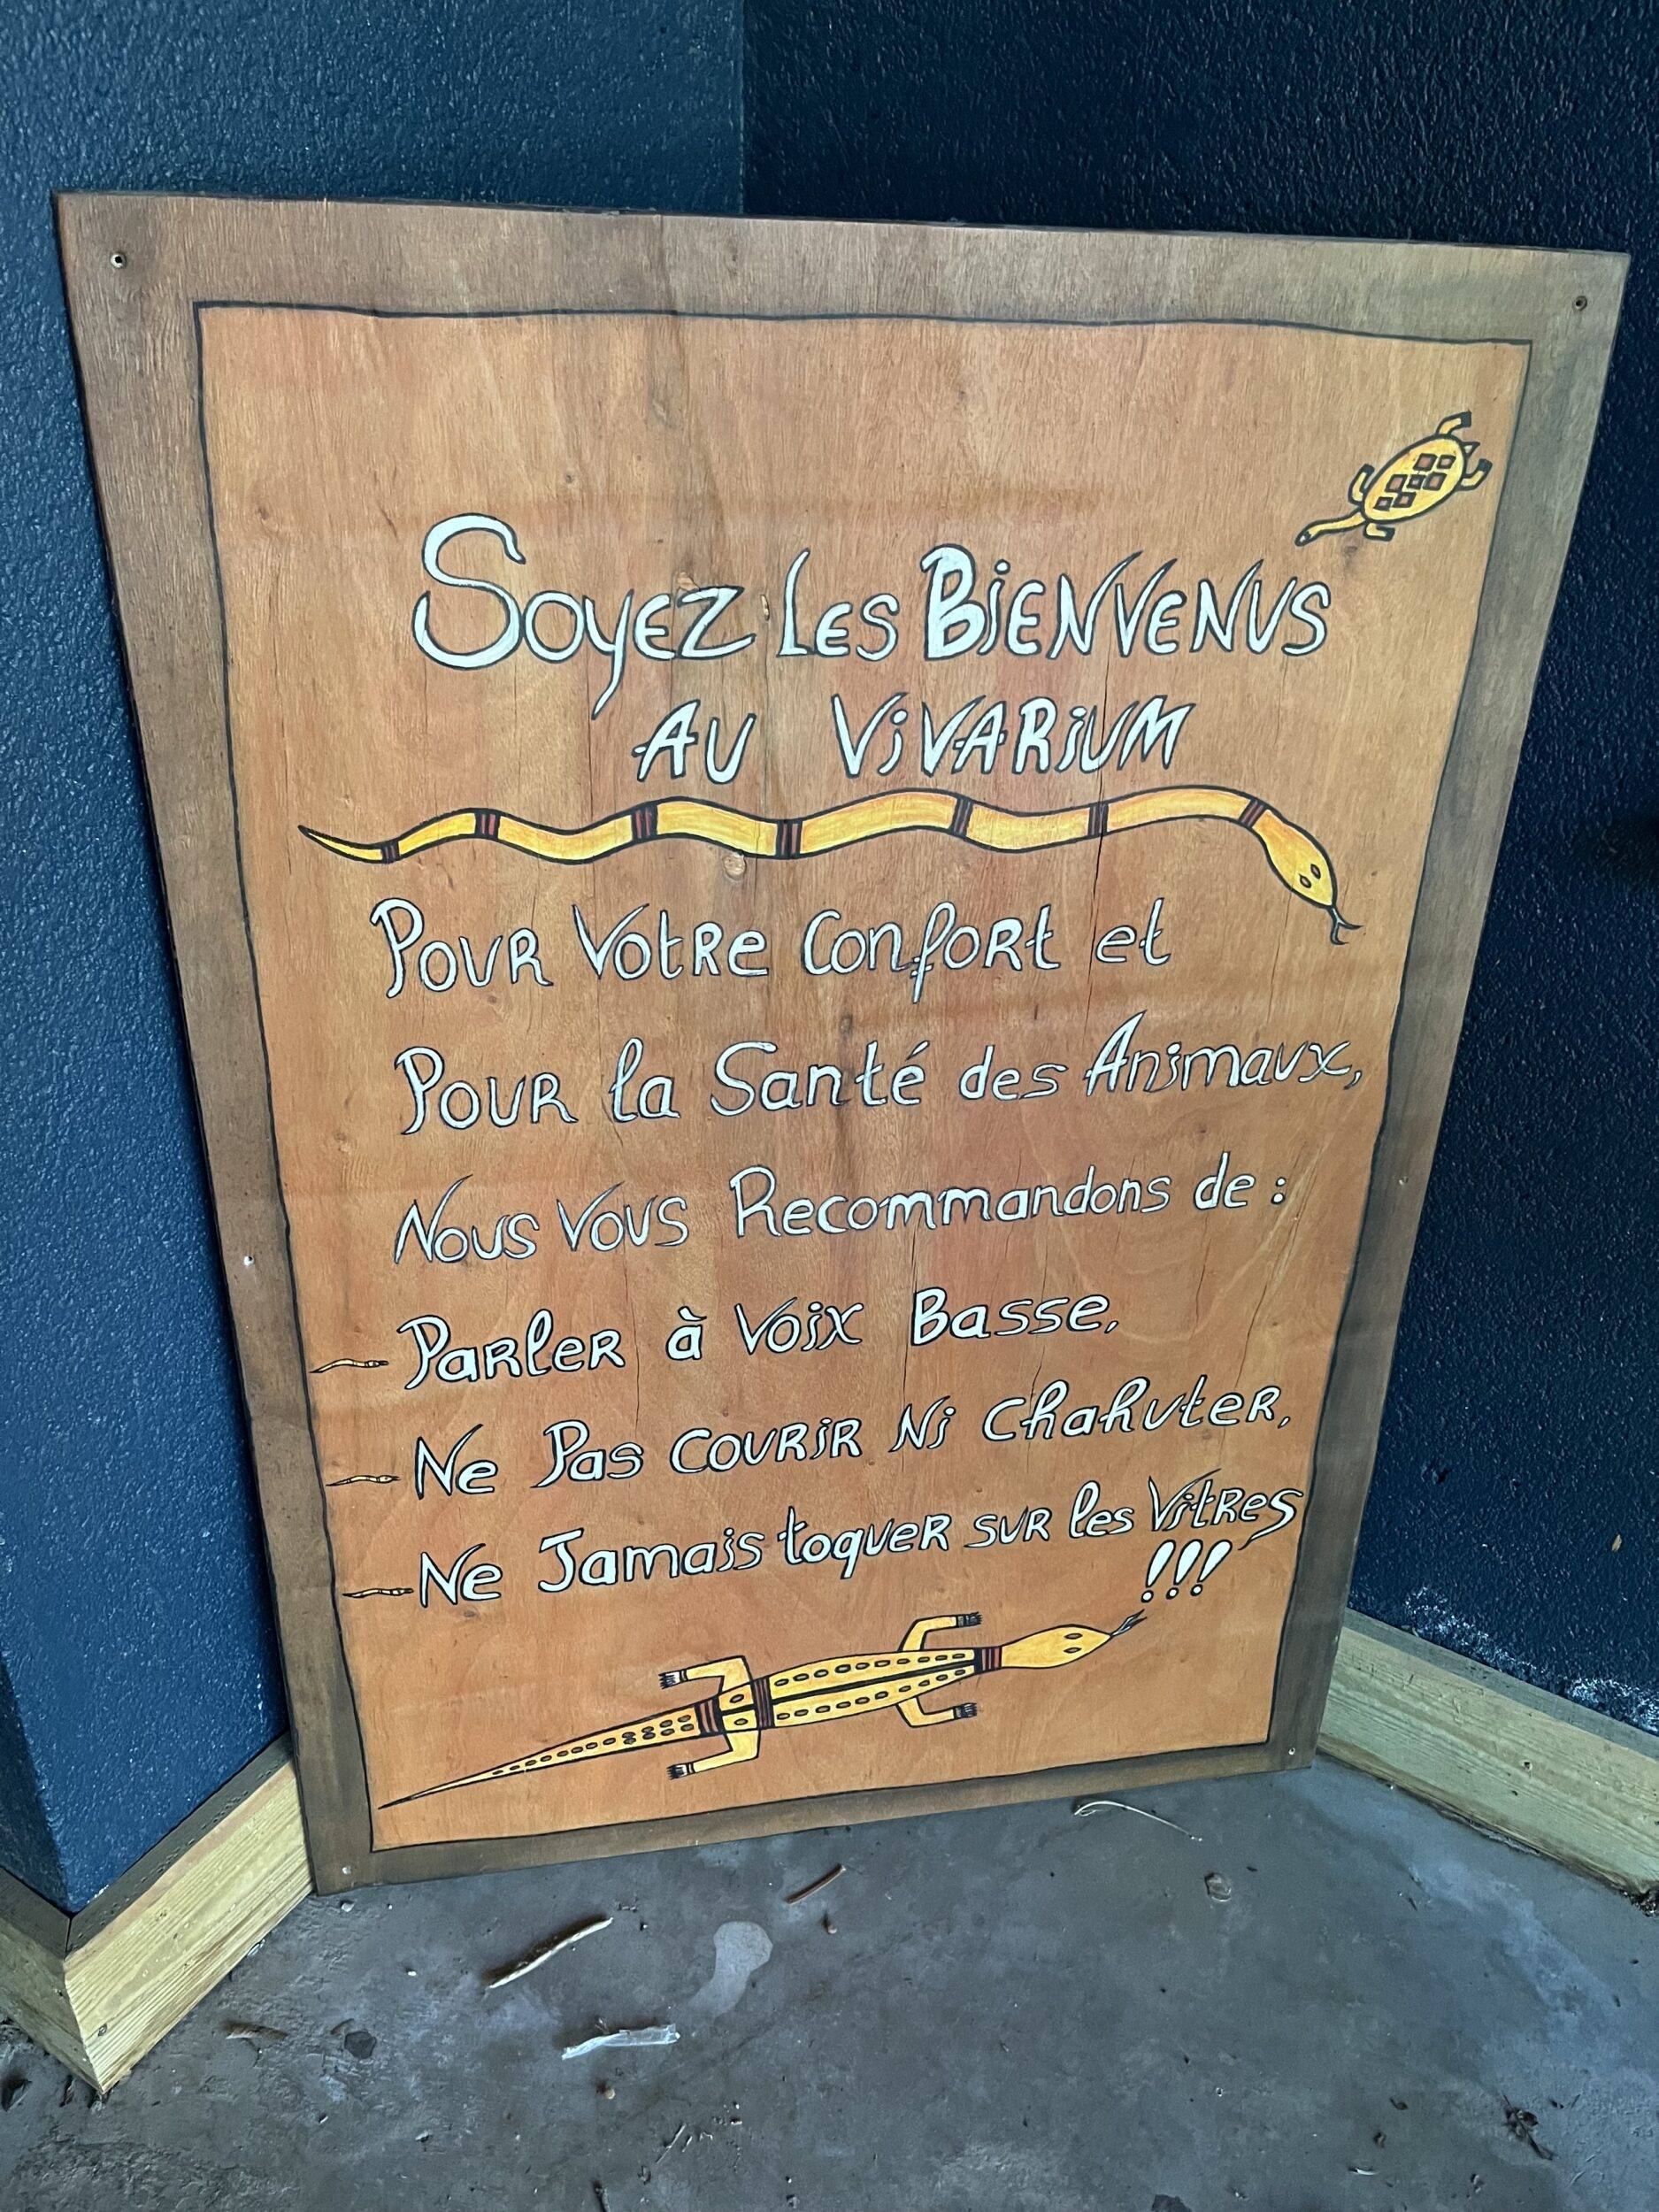 Soyez Les Bienvenus
au Vivarium
Pour Votre Confort et
Pour la Santé des Animaux,
Nous Vous Recommandons de :
- Parler à Voix Basse,
- Ne Pas Courir Ni Chahuter,
- Ne Jamais toquer sur les Vitres
!!!